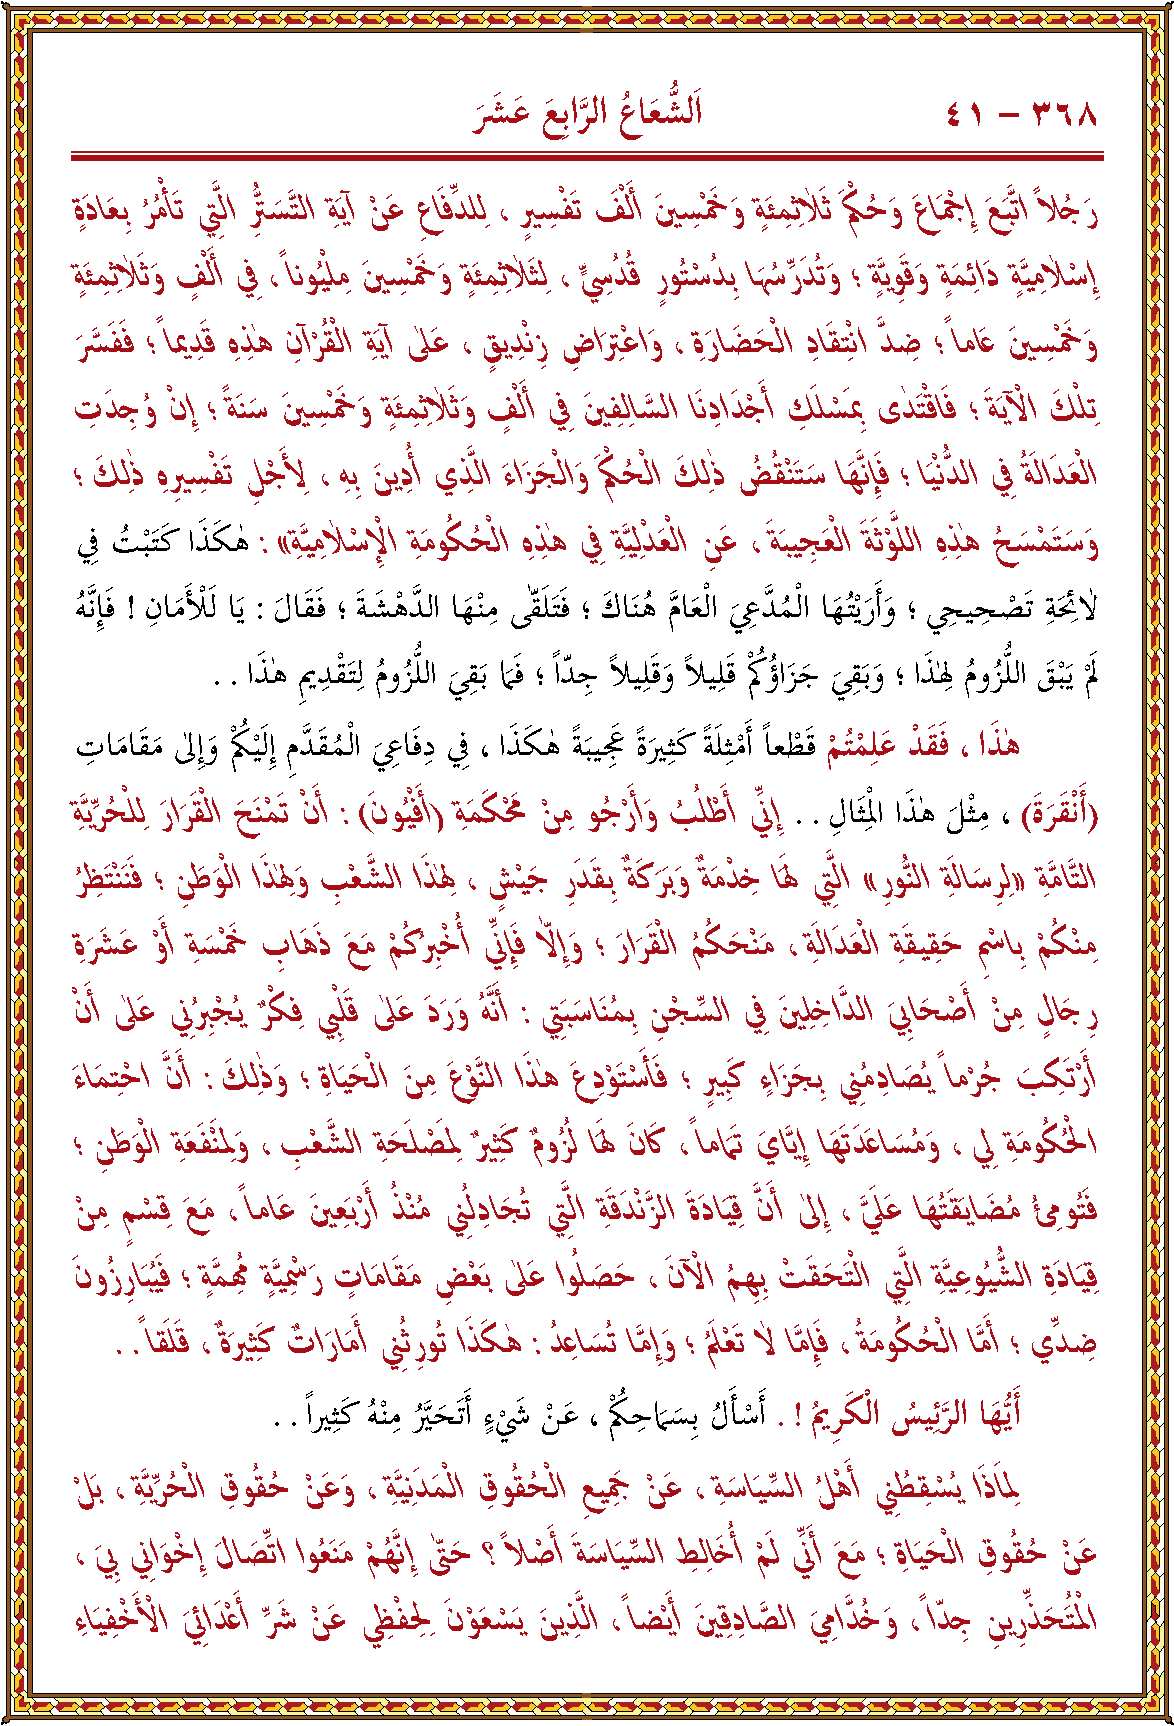 ٣٦٨ – ٤١ اَلشُّعَاعُ الرَّابِعَ عَشَرَ
رَجُلاً اتَّبَعَ إِجْمَاعَ وَحُكْمَ ثَلاٰثِمِئَةٍ وَخَمْسِينَ أَلْفَ تَفْسِيرٍ ، لِلدِّفَاعِ عَنْ آيَةِ التَّسَتُّرِ الَّتِي تَأْمُرُ بِعَادَةٍ
إِسْلاٰمِيَّةٍ دَائِمَةٍ وَقَوِيَّةٍ ؛ وَتُدَرِّسُهَا بِدُسْتُورٍ قُدُسِيٍّ ، لِثَلاٰثِمِئَةٍ وَخَمْسِينَ مِلْيُوناً ، فِي أَلْفٍ وَثَلاٰثِمِئَةٍ
وَخَمْسِينَ عَاماً ؛ ضِدَّ انْتِقَادِ الْحَضَارَةِ ، وَاعْتِرَاضِ زِنْدِيقٍ ، عَلىٰ آيَةِ الْقُرْآنِ هٰذِهِ قَدِيماً ؛ فَفَسَّرَ
تِلْكَ الْآيَةَ ؛ فَاقْتَدٰى بِمَسْلَكِ أَجْدَادِنَا السَّالِفِينَ فِي أَلْفٍ وَثَلاٰثِمِئَةٍ وَخَمْسِينَ سَنَةً ؛ إِنْ وُجِدَتِ
الْعَدَالَةُ فِي الدُّنْيَا ؛ فَإِنَّهَا سَتَنْقُضُ ذٰلِكَ الْحُكْمَ وَالْجَزَاءَ الَّذِي أُدِينَ بِهِ ، لِأَجْلِ تَفْسِيرِهِ ذٰلِكَ ؛
وَسَتَمْسَحُ هٰذِهِ اللَّوْثَةَ الْعَجِيبَةَ ، عَنِ الْعَدْلِيَّةِ فِي هٰذِهِ الْحُكُومَةِ الْإِسْلاٰمِيَّةِ» : هٰكَذَا كَتَبْتُ فِي
لاٰئِحَةِ تَصْحِيحِي ؛ وَأَرَيْتُهَا الْمُدَّعِيَ الْعَامَّ هُنَاكَ ؛ فَتَلَقّٰى مِنْهَا الدَّهْشَةَ ؛ فَقَالَ : يَا لَلْأَمَانِ ! فَإِنَّهُ
لَمْ يَبْقَ اللُّزُومُ لِهٰذَا ؛ وَبَقِيَ جَزَاؤُكُمْ قَلِيلاً وَقَلِيلاً جِدّاً ؛ فَمَا بَقِيَ اللُّزُومُ لِتَقْدِيمِ هٰذَا . .
هٰذَا ، فَقَدْ عَلِمْتُمْ قَطْعاً أَمْثِلَةً كَثِيرَةً عَجِيبَةً هٰكَذَا ، فِي دِفَاعِيَ الْمُقَدَّمِ إِلَيْكُمْ وَإِلىٰ مَقَامَاتِ
(أَنْقَرَةَ) ، مِثْلَ هٰذَا الْمِثَالِ . . إِنِّي أَطْلُبُ وَأَرْجُو مِنْ مَحْكَمَةِ (أَفْيُونَ) : أَنْ تَمْنَحَ الْقَرَارَ لِلْحُرِّيَّةِ
التَّامَّةِ «لِرِسَالَةِ النُّورِ» الَّتِي لَهَا خِدْمَةٌ وَبَرَكَةٌ بِقَدَرِ جَيْشٍ ، لِهٰذَا الشَّعْبِ وَلِهٰذَا الْوَطَنِ ؛ فَنَنْتَظِرُ
مِنْكُمْ بِاسْمِ حَقِيقَةِ الْعَدَالَةِ ، مَنْحَكُمُ الْقَرَارَ ؛ وَإِلّاٰ فَإِنِّي أُخْبِرُكُمْ مَعَ ذَهَابِ خَمْسَةِ أَوْ عَشَرَةِ
رِجَالٍ مِنْ أَصْحَابِيَ الدَّاخِلِينَ فِي السِّجْنِ بِمُنَاسَبَتِي : أَنَّهُ وَرَدَ عَلىٰ قَلْبِي فِكْرٌ يُجْبِرُنِي عَلىٰ أَنْ
أَرْتَكِبَ جُرْماً يُصَادِمُنِي بِجَزَاءٍ كَبِيرٍ ؛ فَأَسْتَوْدِعَ هٰذَا النَّوْعَ مِنَ الْحَيَاةِ ؛ وَذٰلِكَ : أَنَّ احْتِمَاءَ
الْحُكُومَةِ لِي ، وَمُسَاعَدَتَهَا إِيَّايَ تَمَاماً ، كَانَ لَهَا لُزُومٌ كَثِيرٌ لِمَصْلَحَةِ الشَّعْبِ ، وَلِمَنْفَعَةِ الْوَطَنِ ؛
فَتُومِئُ مُضَايَقَتُهَا عَلَيَّ ، إِلىٰ أَنَّ قِيَادَةَ الزَّنْدَقَةِ الَّتِي تُجَادِلُنِي مُنْذُ أَرْبَعِينَ عَاماً ، مَعَ قِسْمٍ مِنْ
قِيَادَةِ الشُّيُوعِيَّةِ الَّتِي الْتَحَقَتْ بِهِمُ الْآنَ ، حَصَلُوا عَلىٰ بَعْضِ مَقَامَاتٍ رَسْمِيَّةٍ مُهِمَّةٍ ؛ فَيُبَارِزُونَ
ضِدِّي ؛ أَمَّا الْحُكُومَةُ ، فَإِمَّا لاٰ تَعْلَمُ ؛ وَإِمَّا تُسَاعِدُ : هٰكَذَا تُورِثُنِي أَمَارَاتٌ كَثِيرَةٌ ، قَلَقاً . .
أَيُّهَا الرَّئِيسُ الْكَرِيمُ ! . أَسْأَلُ بِسَمَاحِكُمْ ، عَنْ شَيْءٍ أَتَحَيَّرُ مِنْهُ كَثِيراً . .
لِمَاذَا يُسْقِطُنِي أَهْلُ السِّيَاسَةِ ، عَنْ جَمِيعِ الْحُقُوقِ الْمَدَنِيَّةِ ، وَعَنْ حُقُوقِ الْحُرِّيَّةِ ، بَلْ
عَنْ حُقُوقِ الْحَيَاةِ ؛ مَعَ أَنِّي لَمْ أُخَالِطِ السِّيَاسَةَ أَصْلاً ؟ حَتّٰى إِنَّهُمْ مَنَعُوا اتِّصَالَ إِخْوَانِي بِيَ ،
الْمُتَحَذِّرِينَ جِدّاً ، وَخُدَّامِيَ الصَّادِقِينَ أَيْضاً ، الَّذِينَ يَسْعَوْنَ لِحِفْظِي عَنْ شَرِّ أَعْدَائِيَ الْأَخْفِيَاءِ